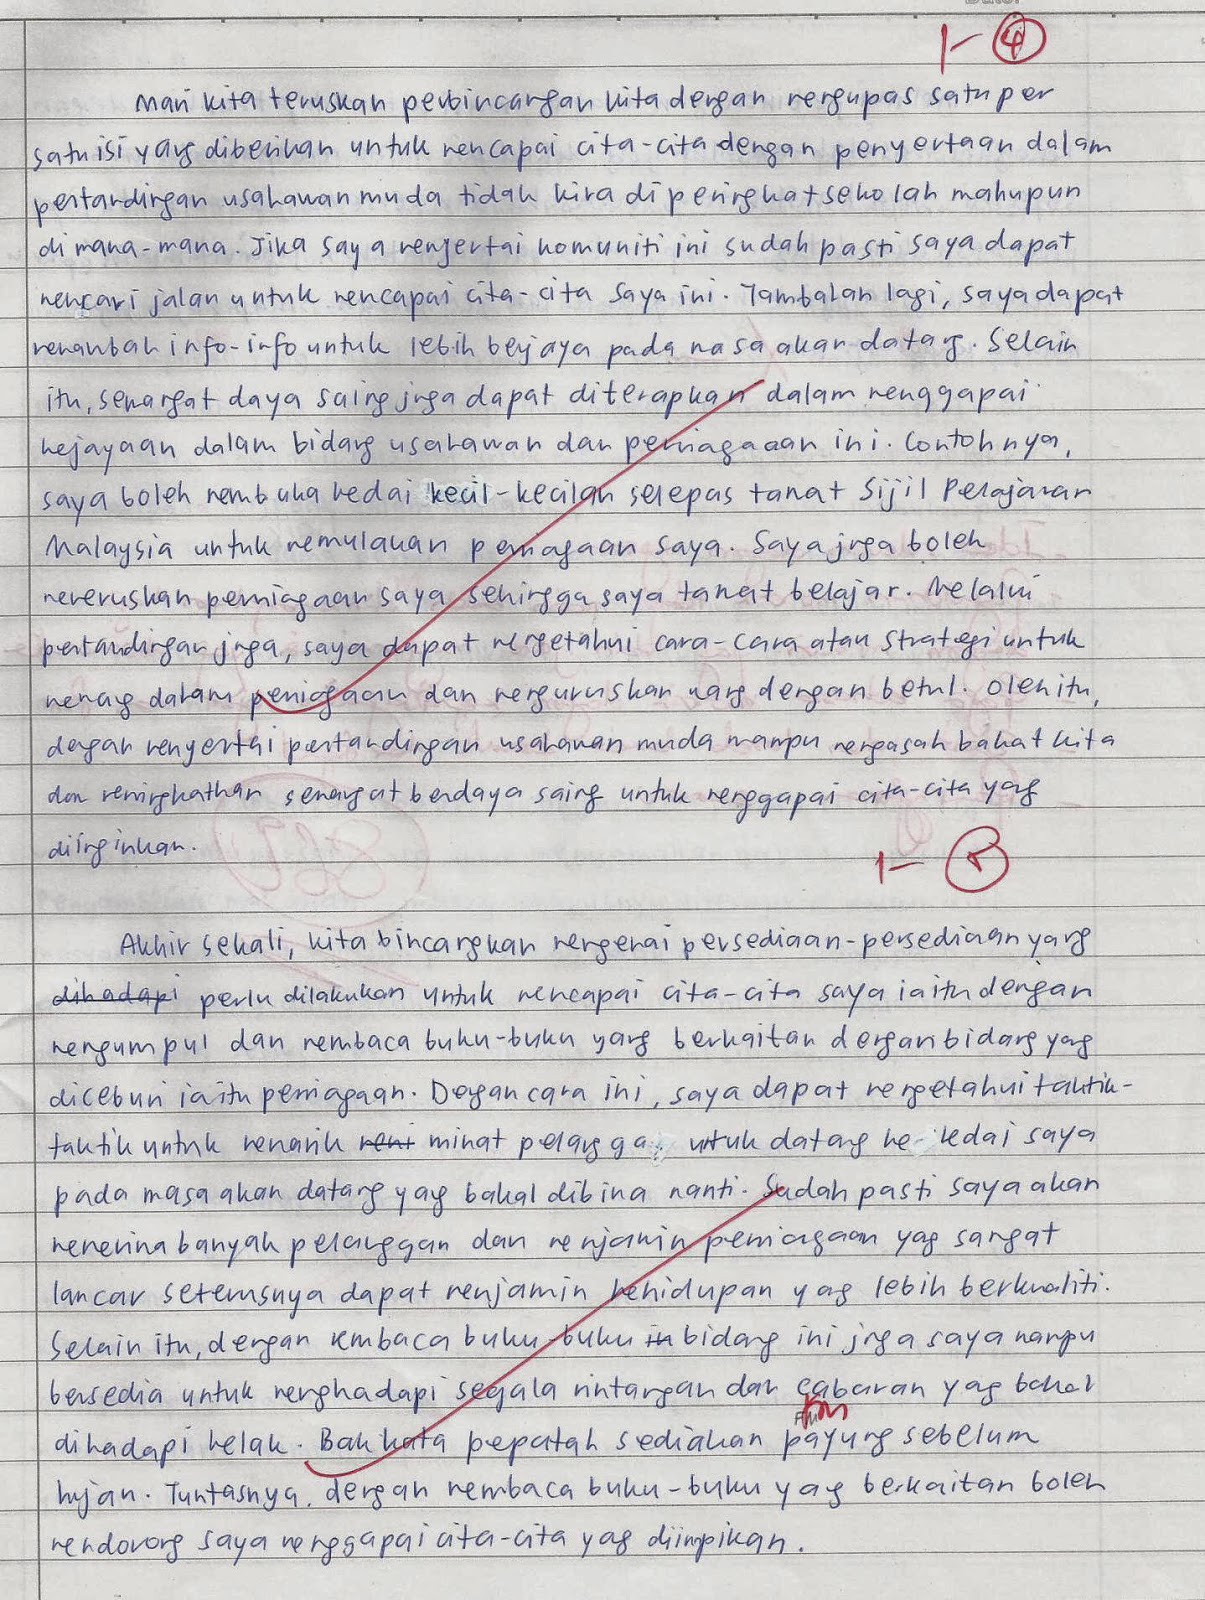 1-④
Mari kita teruskan perbincangan kita dengan mengupas satu per
satu isi yang diberikan untuk mencapai cita-cita dengan penyertaan dalam
pertandingan usahawan muda tidak kira di peringkat sekolah mahupun
di mana-mana. Jika saya menyertai komuniti ini sudah pasti saya dapat
mencari jalan untuk mencapai cita-cita saya ini. Tambahan lagi, saya dapat
menambah info-info untuk lebih berjaya pada masa akan datang. Selain
itu, semangat daya saing juga dapat diterapkan dalam menggapai
kejayaan dalam bidang usahawan dan perniagaaan ini. Contohnya,
saya boleh membuka kedai kecil-kecilan selepas tamat Sijil Pelajaran
Malaysia untuk memulakan perniagaan saya. Saya juga boleh
meneruskan perniagaan saya sehingga saya tamat belajar. Melalui
pertandingan juga, saya dapat mengetahui cara-cara atau strategi untuk
menang dalam perniagaan dan menguruskan wang dengan betul. Oleh itu,
dengan menyertai pertandingan usahawan muda mampu mengasah bakat kita
dan meningkatkan semangat berdaya saing untuk menggapai cita-cita yang
diinginkan.
1-⑤
Akhir sekali, kita bincangkan mengenai persediaan-persediaan yang
dihadapi perlu dilakukan untuk mencapai cita-cita saya iaitu dengan
mengumpul dan membaca buku-buku yang berkaitan dengan bidang yang
diceburi iaitu perniagaan. Dengan cara ini, saya dapat mengetahui taktik-
taktik untuk menarik meni minat pelangga untuk datang ke kedai saya
pada masa akan datang yang bakal dibina nanti. Sudah pasti saya akan
menerima banyak pelanggan dan menjamin perniagaan yag sangat
lancar seterusnya dapat menjamin kehidupan yang lebih berkualiti.
Selain itu, dengan membaca buku-buku in bidang ini juga saya mampu
bersedia untuk menghadapi segala rintangan dan cabaran yang bakal
dihadapi kelak. Bak kata pepatah sediakan payung sebelum
hujan. Tuntasnya, dengan membaca buku-buku yang berkaitan boleh
mendorong saya menggapai cita-cita yag diimpikan.